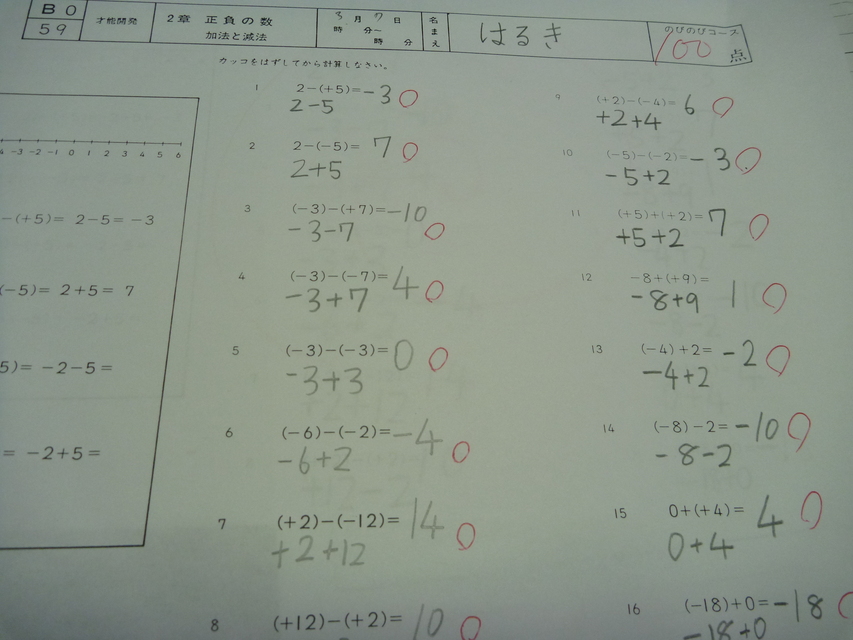 B 0
59
才能開発
2章 正負の数
加法と減法
3月7日
時 分〜
時 分
名まえ
はるき
のびのびコース
100点
カッコをはずしてから計算しなさい。
-3 -2 -1 0 1 2 3 4 5 6
-(+5)= 2-5= -3
(-5)= 2+5= 7
5)= -2-5=
= -2+5=
1 2-(+5)=-3
2-5
2 2-(-5)= 7
2+5
3 (-3)-(+7)=-10
-3-7
4 (-3)-(-7)=4
-3+7
5 (-3)-(-3)=0
-3+3
6 (-6)-(-2)=-4
-6+2
7 (+2)-(-12)=14
+2+12
8 (+12)-(+2)=10
9 (+2)-(-4)=6
+2+4
10 (-5)-(-2)=-3
-5+2
11 (+5)+(+2)=7
+5+2
12 -8+(+9)=
-8+9 1
13 (-4)+2=-2
-4+2
14 (-8)-2=-10
-8-2
15 0+(+4)=4
0+4
16 (-18)+0=-18
-18+0